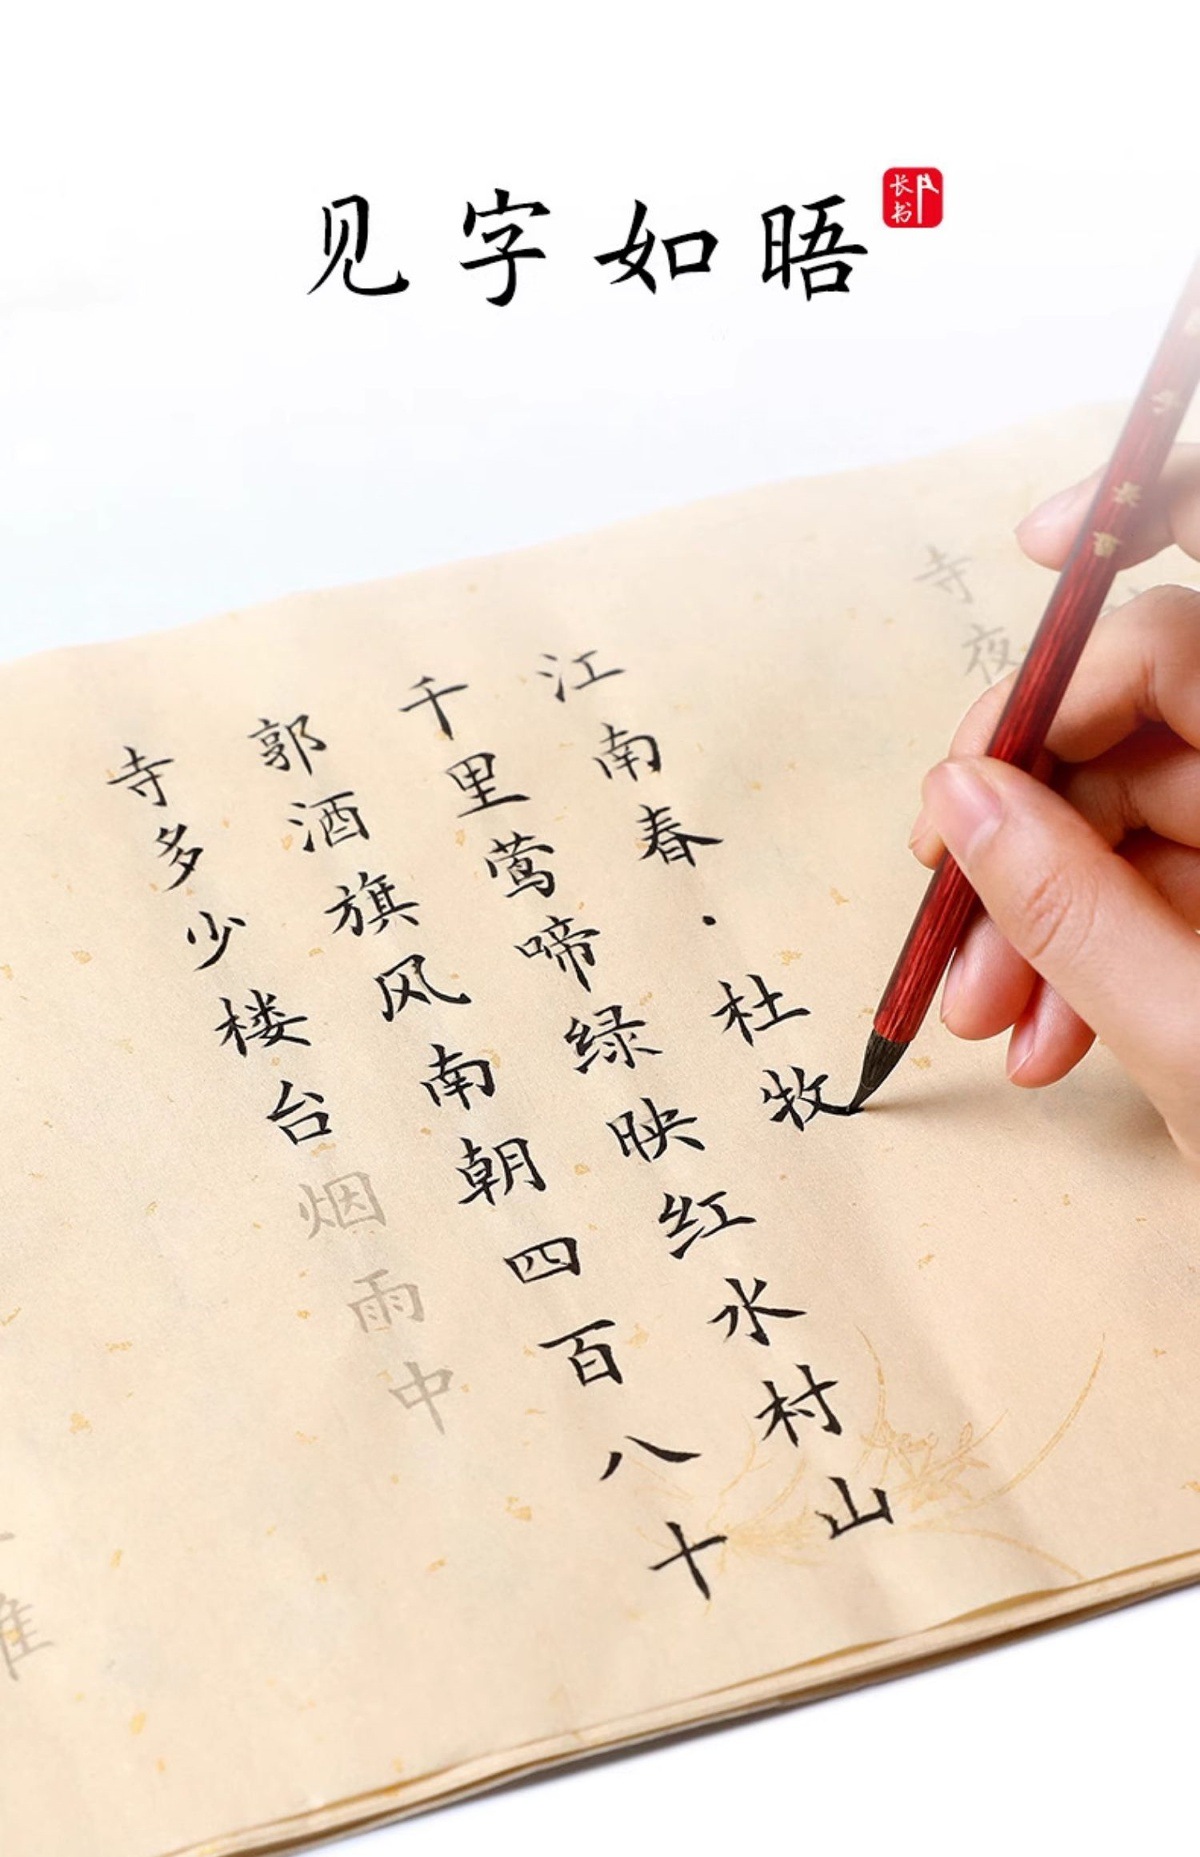 见字如晤
长书
寺
夜
江南春·杜牧
千里莺啼绿映红水村山
郭酒旗风南朝四百八十
寺多少楼台烟雨中